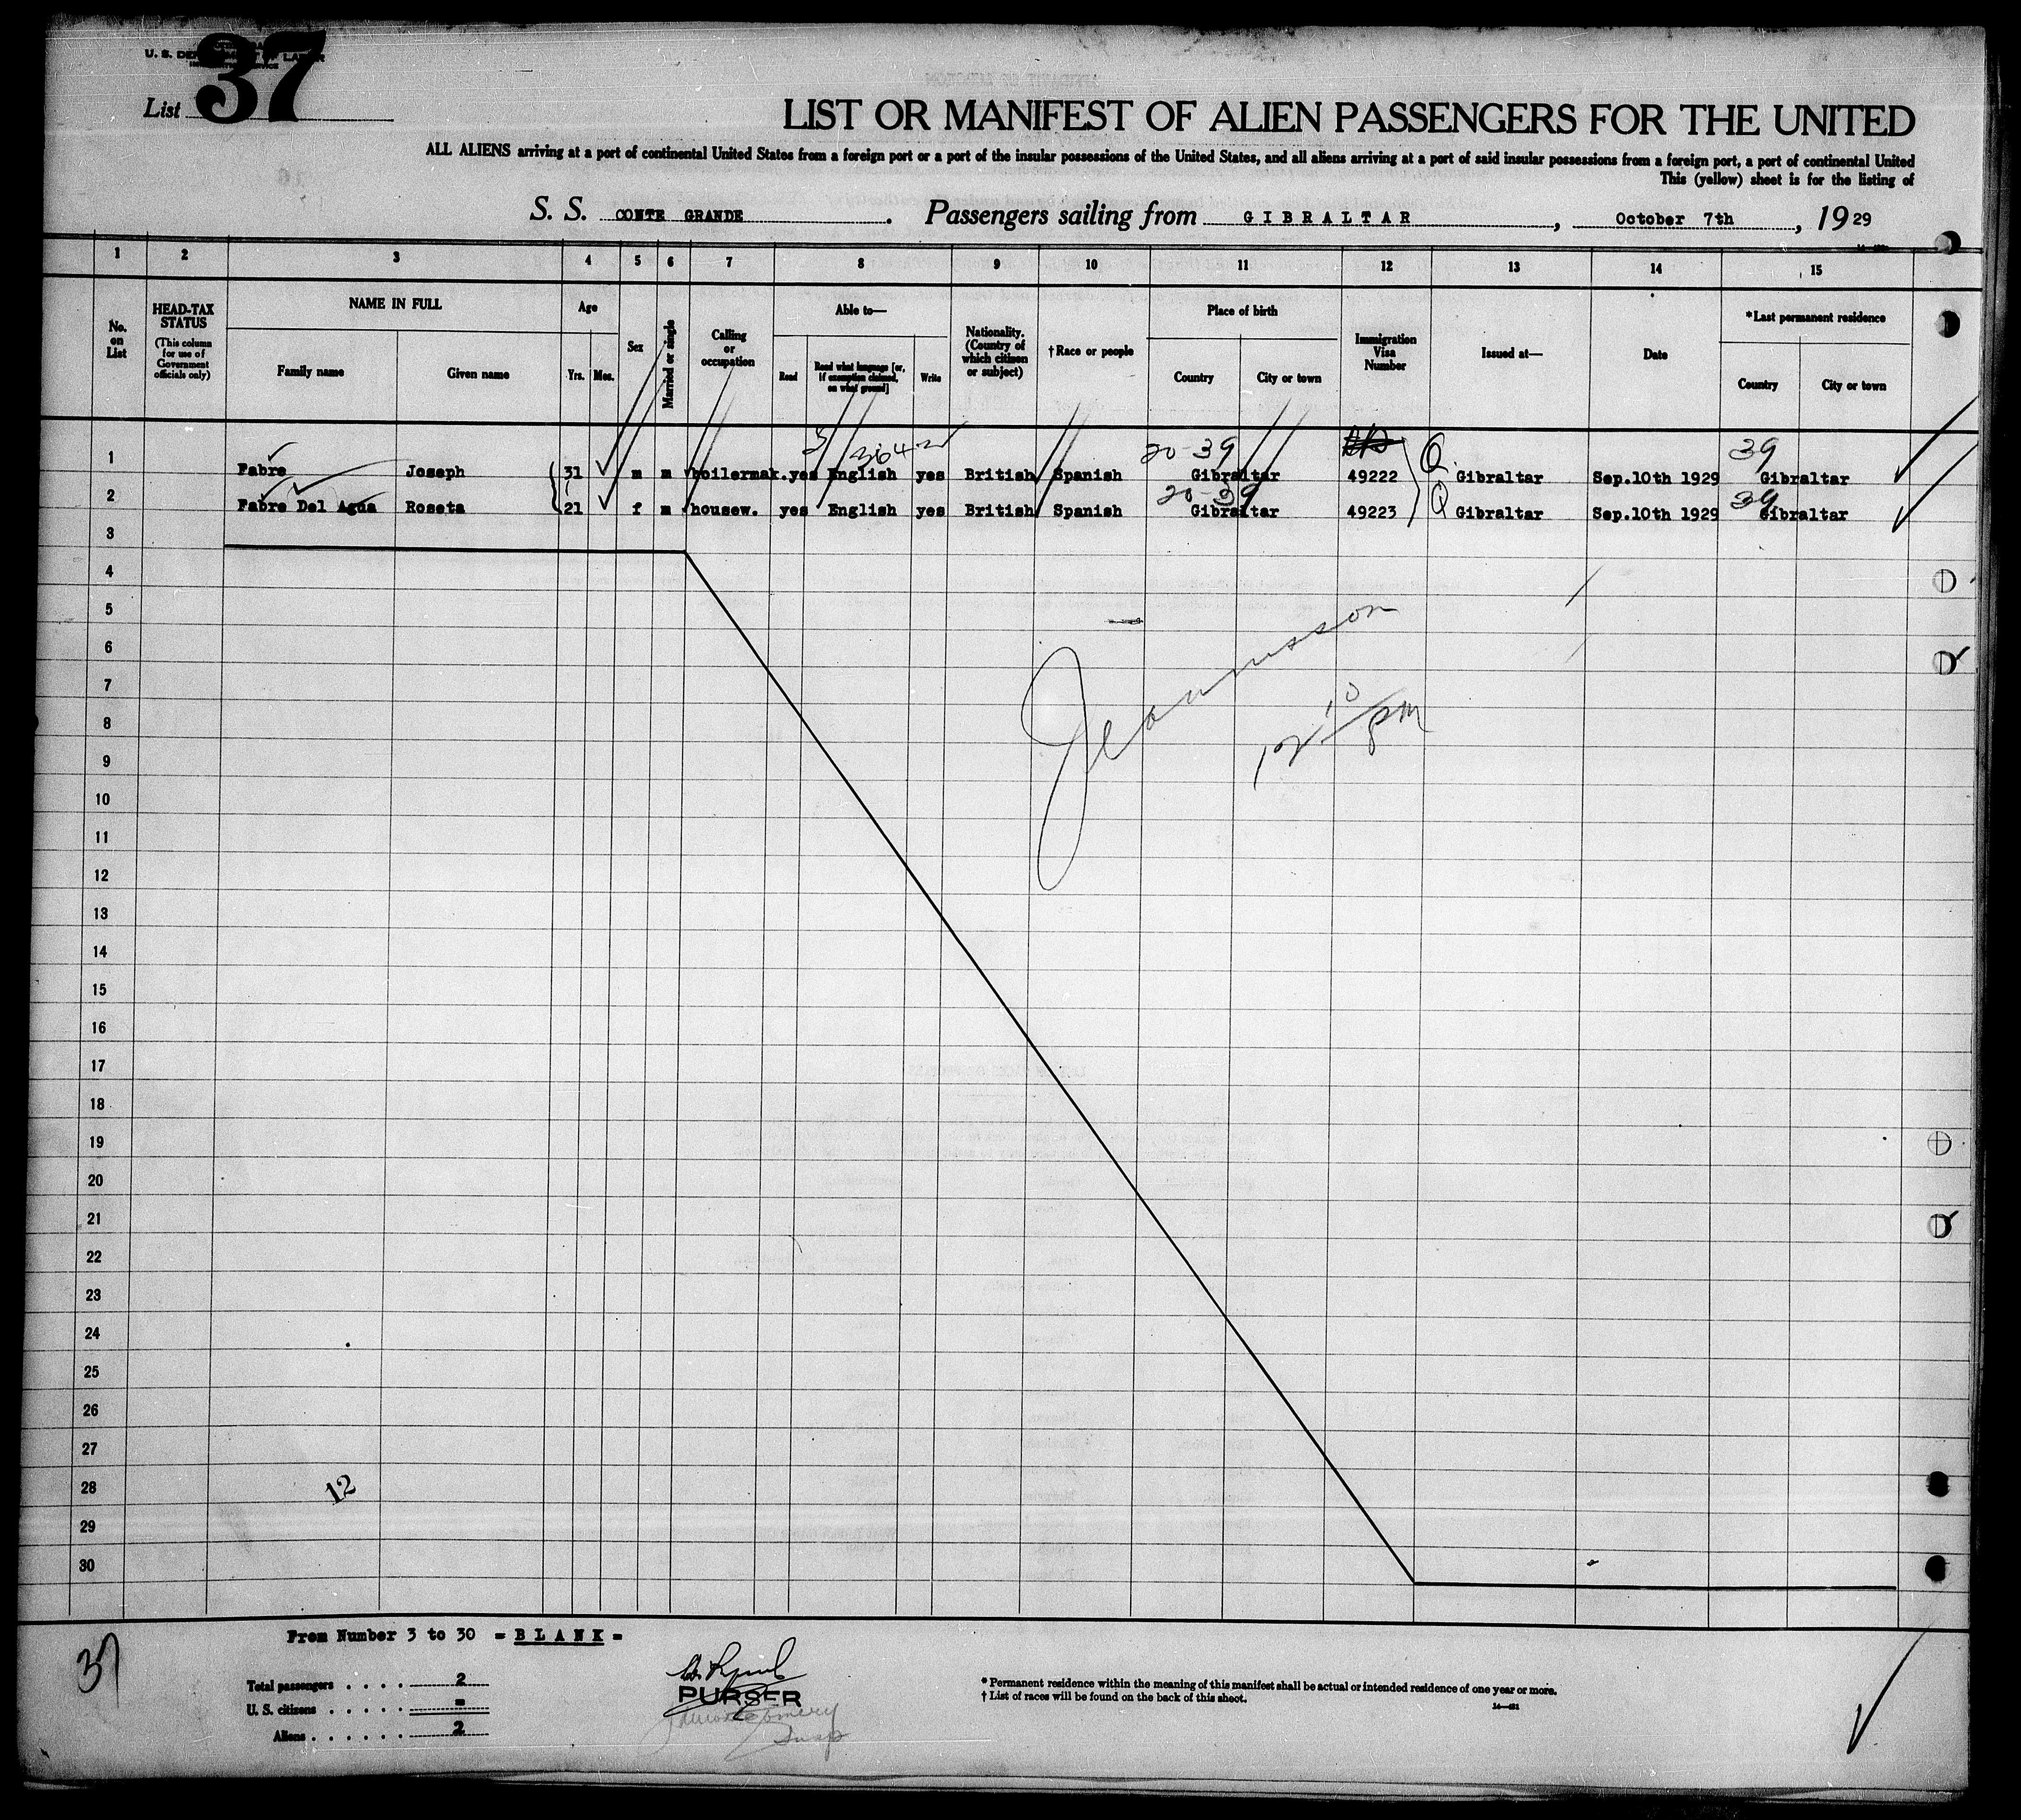 U. S. DEPARTMENT OF LABOR
List 37
LIST OR MANIFEST OF ALIEN PASSENGERS FOR THE UNITED
ALL ALIENS arriving at a port of continental United States from a foreign port or a port of the insular possessions of the United States, and all aliens arriving at a port of said insular possessions from a foreign port, a port of continental United
This (yellow) sheet is for the listing of
S. S. CONTE GRANDE. Passengers sailing from GIBRALTAR, October 7th, 1929
1 2 3 4 5 6 7 8 9 10 11 12 13 14 15
No. on List
HEAD-TAX STATUS (This column for use of Government officials only)
NAME IN FULL
Family name Given name
Age
Yrs. Mos.
Sex
Married or single
Calling or occupation
Able to—
Read Read what language [or, if exemption claimed, on what ground] Write
Nationality. (Country of which citizen or subject)
†Race or people
Place of birth
Country City or town
Immigration Visa Number
Issued at—
Date
*Last permanent residence
Country City or town
3642 20-39 39
1 Fabre Joseph 31 m m boilermak. yes English yes British Spanish Gibraltar 49222 Q Gibraltar Sep.10th 1929 Gibraltar
20-39 39
2 Fabre Del Agua Roseta 21 f m housew. yes English yes British Spanish Gibraltar 49223 Q Gibraltar Sep.10th 1929 Gibraltar
3
4
5
6
7
8
9
10
11
12
13
14
15
16
17
18
19
20
21
22
23
24
25
26
27
28 12
29
30
From Number 3 to 30 = BLANK =
37
Total passengers . . . . 2
U. S. citizens . . . . . =
Aliens . . . . . . 2
PURSER
* Permanent residence within the meaning of this manifest shall be actual or intended residence of one year or more.
† List of races will be found on the back of this sheet.